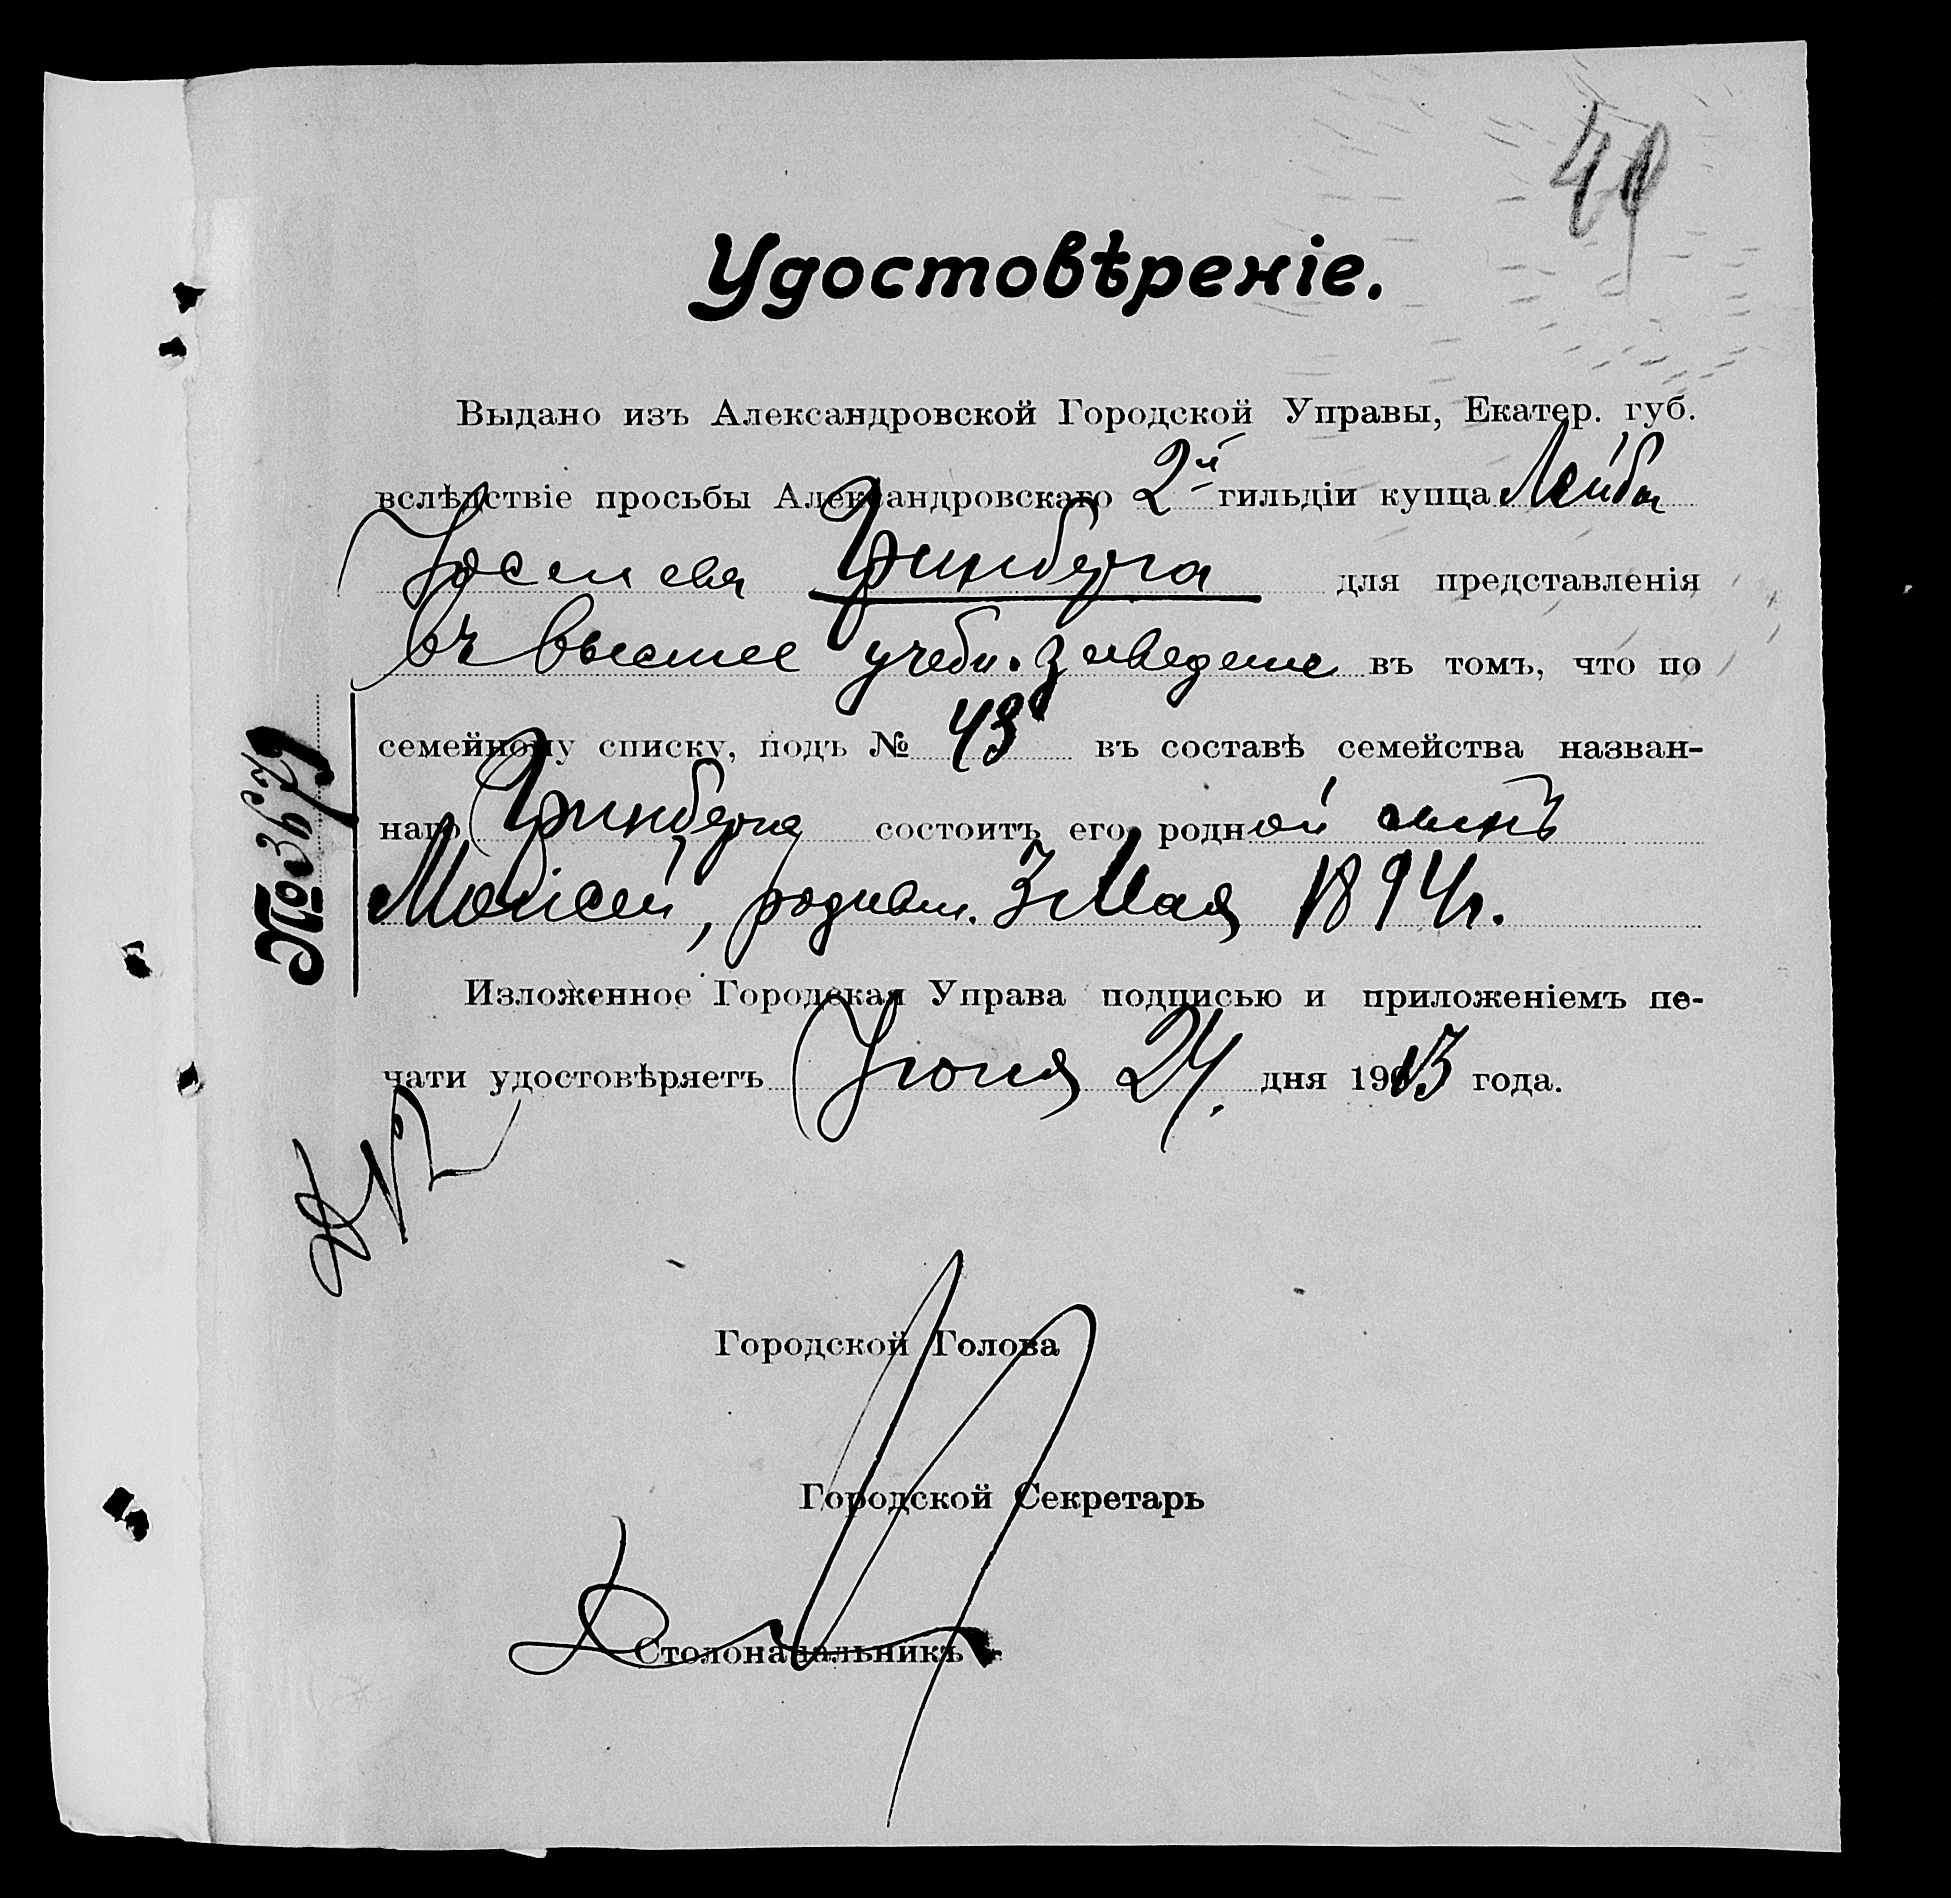 49
Удостовѣреніе.
Выдано изъ Александровской Городской Управы, Екатер. губ.
вслѣдствіе просьбы Александровскаго 2й гильдіи купца Лейба
Іосиева Гринберга для представленія
въ высшее учебн. заведеніе въ томъ, что по
семейному списку, подъ № 43 въ составѣ семейства назван-
наго Гринберга состоитъ его родной сынъ
Мойсей, родивш. 3 Мая 1894 г.
Изложенное Городская Управа подписью и приложеніемъ пе-
чати удостовѣряетъ Іюня 24 дня 1913 года.
№ 3679
Городской Голова
Городской Секретарь
Столоначальникъ